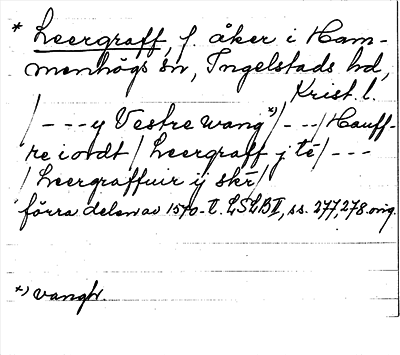 * Leergraff, f. åker i Ham-
menhögs sn, Ingelstads hd,
Krist. l.
/---y Vestre wang *)/---/Hauff-
re i ordt/Leergraff j té/---
/Leergraffuir ij skr/
förra delen av 1570-t. LSLB II, ss. 277, 278. orig.
*) vangh.